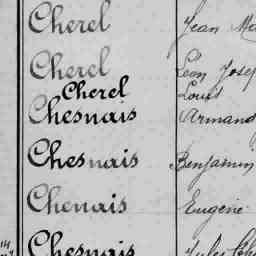 Cherel Jean Ma
Cherel Léon Josep
Cherel Louis
Chesnais Armand
Chesnais Benjamin
Chenais Eugène
Chesnais Jules